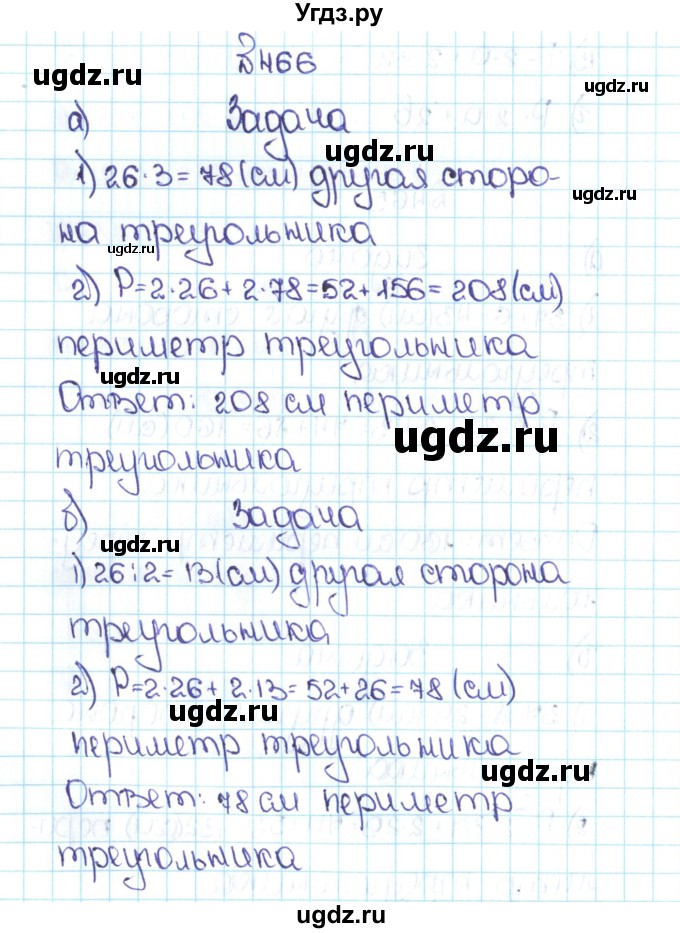 Угдз.ру
ugdz.ru
№466
а) Задача
ugdz.ru
1) 26·3=78(см) другая сторо-
ugdz.ru
на треугольника
ugdz.ru
2) P=2·26+2·78=52+156=208(см)
периметр треугольника
ugdz.ru
Ответ: 208 см периметр
ugdz.ru
треугольника
б) Задача
ugdz.ru
1) 26:2=13(см) другая сторона
треугольника
2) P=2·26+2·13=52+26=78(см)
ugdz.ru
периметр треугольника
ugdz.ru
Ответ: 78 см периметр
треугольника
ugdz.ru